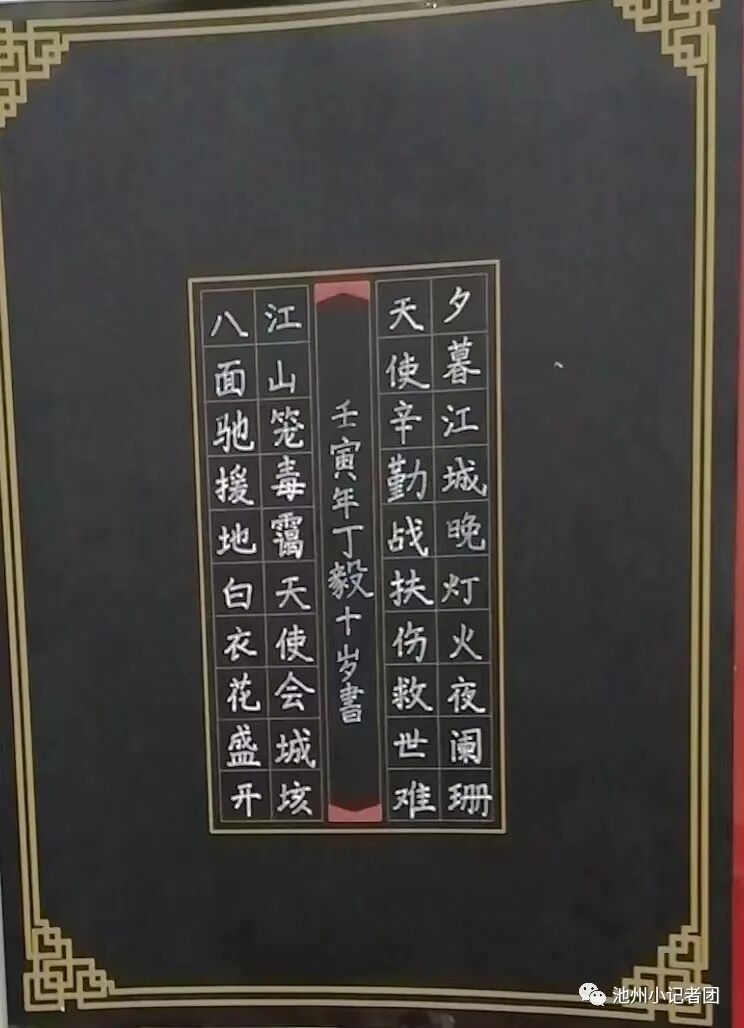 夕暮江城晚灯火夜阑珊
天使辛勤战扶伤救世难
壬寅年丁毅十岁書
江山笼毒霭天使会城垓
八面驰援地白衣花盛开
池州小记者团